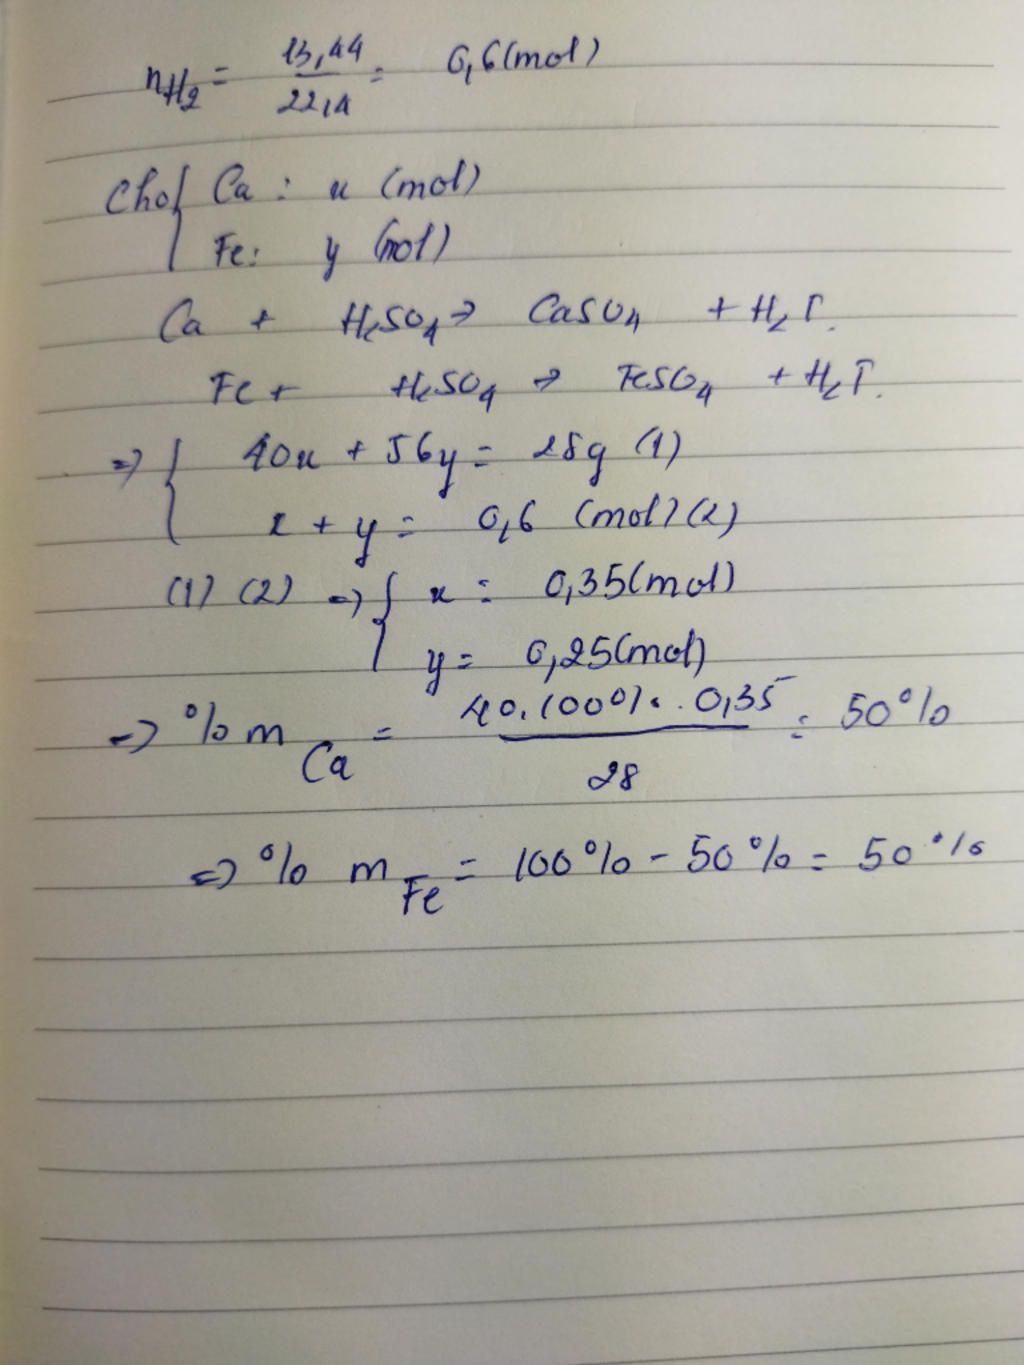 nH2 = 13,44 / 22,4 = 0,6 (mol)
Cho { Ca : x (mol)
Fe: y (mol)
Ca + H2SO4 → CaSO4 + H2↑.
Fe + H2SO4 → FeSO4 + H2↑.
=> { 40x + 56y = 28g (1)
x + y = 0,6 (mol) (2)
(1) (2) => { x = 0,35 (mol)
y = 0,25 (mol)
=> % m Ca = 40.100%.0,35 / 28 = 50%
=> % m Fe = 100% - 50% = 50%